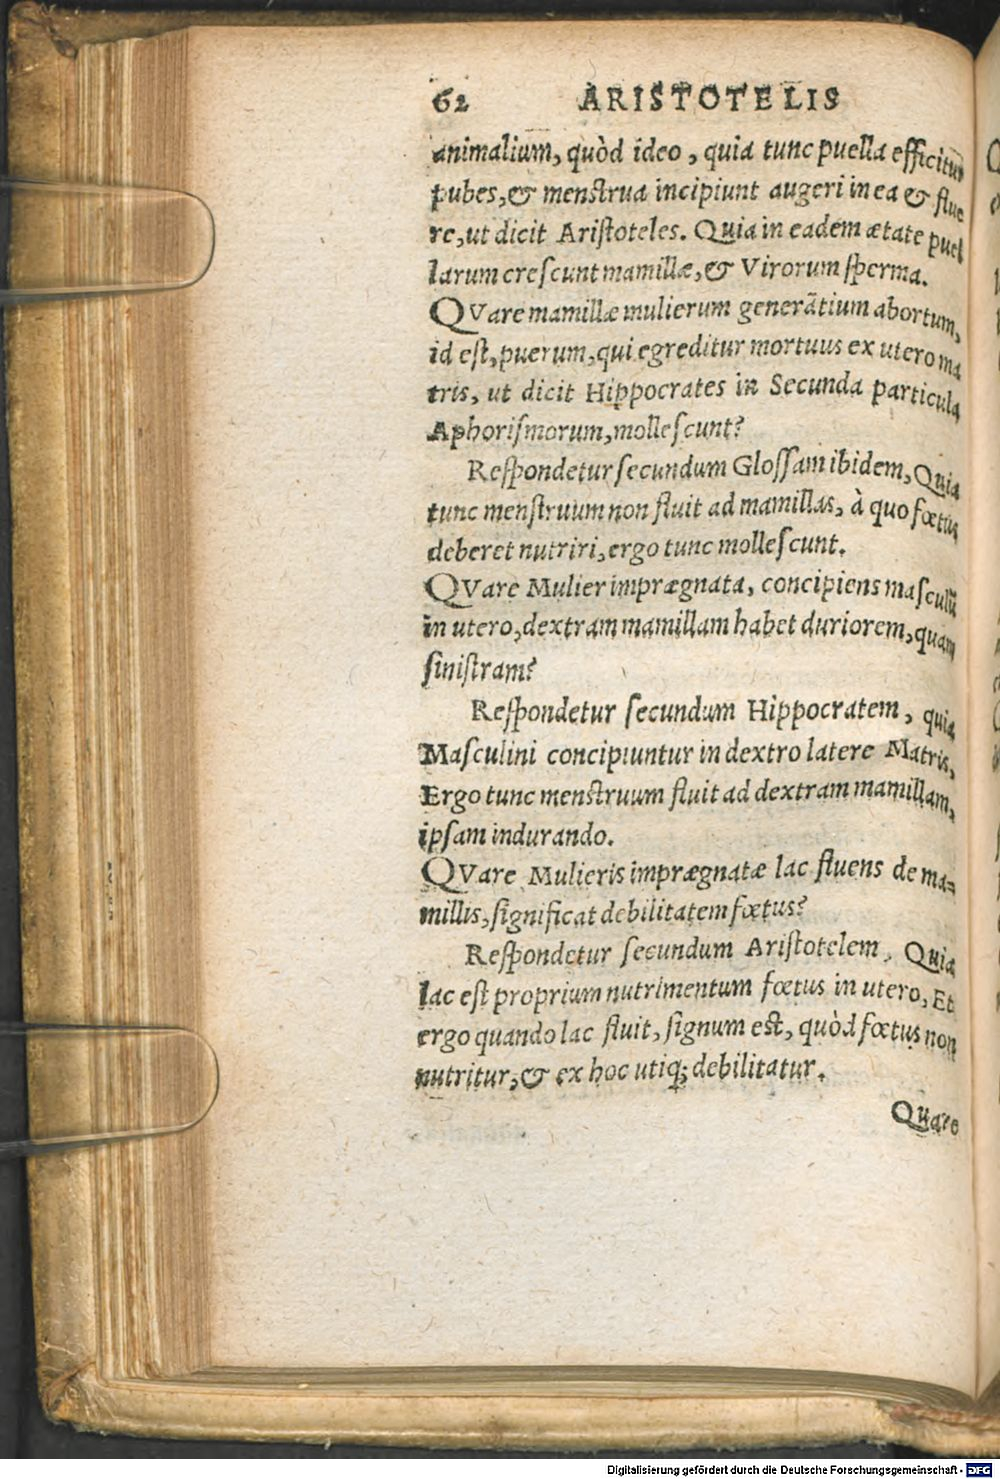 62 ARISTOTELIS
animalium, quòd ideo, quia tunc puella efficitur
pubes, & menstrua incipiunt augeri in ea & flue
re, ut dicit Aristoteles. Quia in eadem ætate puel
larum crescunt mamillæ, & Virorum sperma.
QVare mamillæ mulierum generãtium abortum,
id est, puerum, qui egreditur mortuus ex utero ma
tris, ut dicit Hippocrates in Secunda particula
Aphorismorum, mollescunt?
Respondetur secundum Glossam ibidem, Quia
tunc menstruum non fluit ad mamillas, à quo fœtus
deberet nutriri, ergo tunc mollescunt.
QVare Mulier imprægnata, concipiens masculũ
in utero, dextram mamillam habet duriorem, quam
sinistram?
Respondetur secundum Hippocratem, quia
Masculini concipiuntur in dextro latere Matris,
Ergo tunc menstruum fluit ad dextram mamillam,
ipsam indurando.
QVare Mulieris imprægnatæ lac fluens de ma-
millis, significat debilitatem fœtus?
Respondetur secundum Aristotelem, Quia
lac est proprium nutrimentum fœtus in utero, Et
ergo quando lac fluit, signum est, quòd fœtus non
nutritur, & ex hoc utiq; debilitatur.
Quare
Digitalisierung gefördert durch die Deutsche Forschungsgemeinschaft - DFG